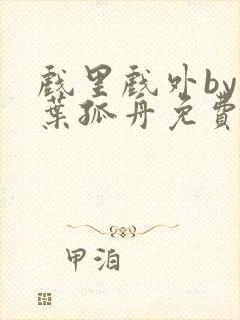 戲里戲外by
葉孤舟免費
甲泊